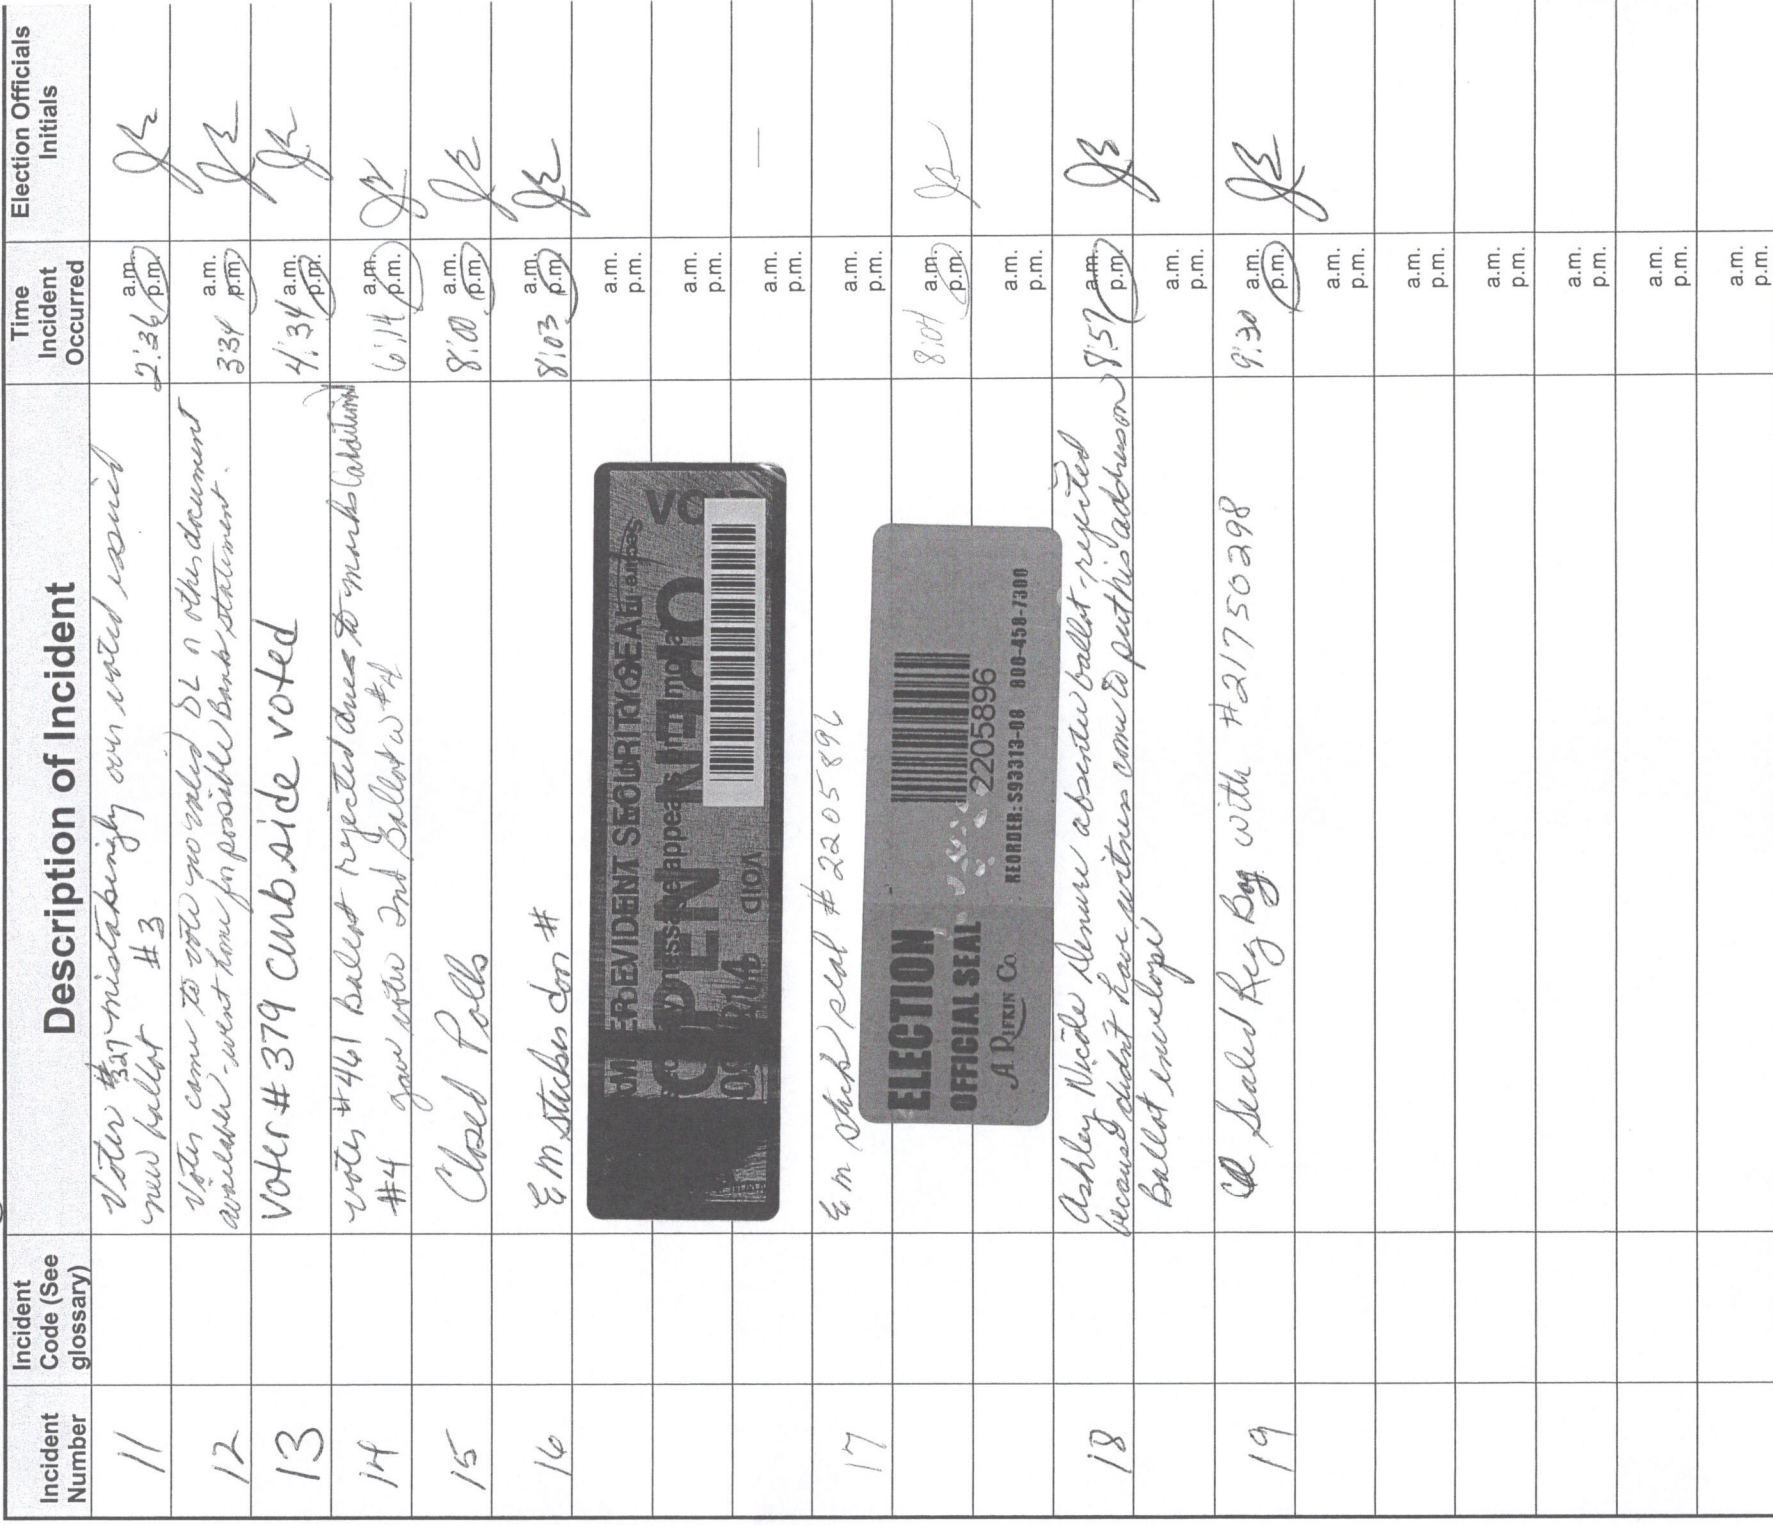 Incident Number
Incident Code (See glossary)
Description of Incident
Time Incident Occurred
Election Officials Initials
11
Voter #327 mistakingly over voted issued
new ballot #3
2:36 a.m. p.m.
12
Voter come to vote no valid DL n other document
available - went home for possible Bank statement.
3:34 a.m. p.m.
13
Voter #379 curbside voted
4:34 a.m. p.m.
14
voter #461 ballot rejected due to marks
#4 gave voter 2nd Ballot #4
6:14 a.m. p.m.
15
Closed Polls
8:00 a.m. p.m.
16
Em sticker door #
8:03 a.m. p.m.
a.m. p.m.
OPEN
VOID
a.m. p.m.
a.m. p.m.
17
Em stuck seal # 2205896
a.m. p.m.
ELECTION
OFFICIAL SEAL
A. RIFKIN Co.
2205896
REORDER: S93313-08 800-458-7300
8:04 a.m. p.m.
a.m. p.m.
18
Ashley Nicole absentee ballot - rejected
because didn't have witness come to put his address on
Ballot envelope
8:57 a.m. p.m.
a.m. p.m.
19
Sealed Reg Bag with #21750298
9:30 a.m. p.m.
a.m. p.m.
a.m. p.m.
a.m. p.m.
a.m. p.m.
a.m. p.m.
a.m. p.m.